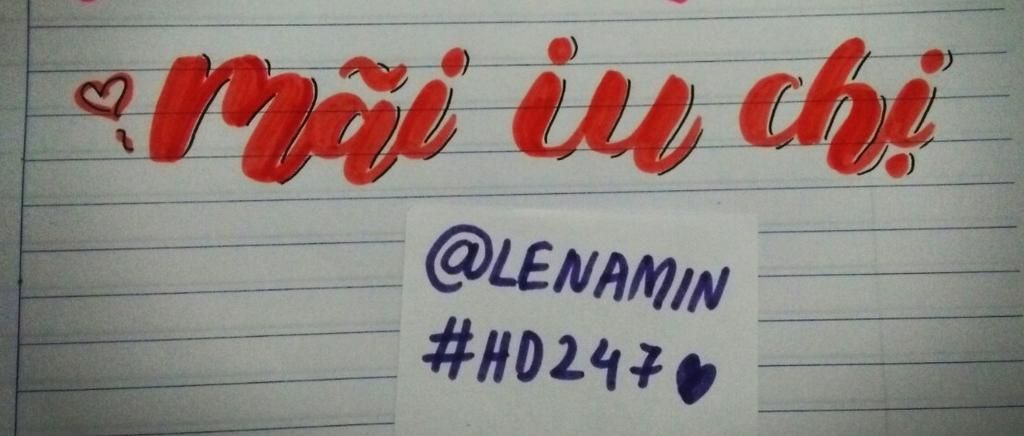 Mãi iu chị
@LENAMIN
#HD247